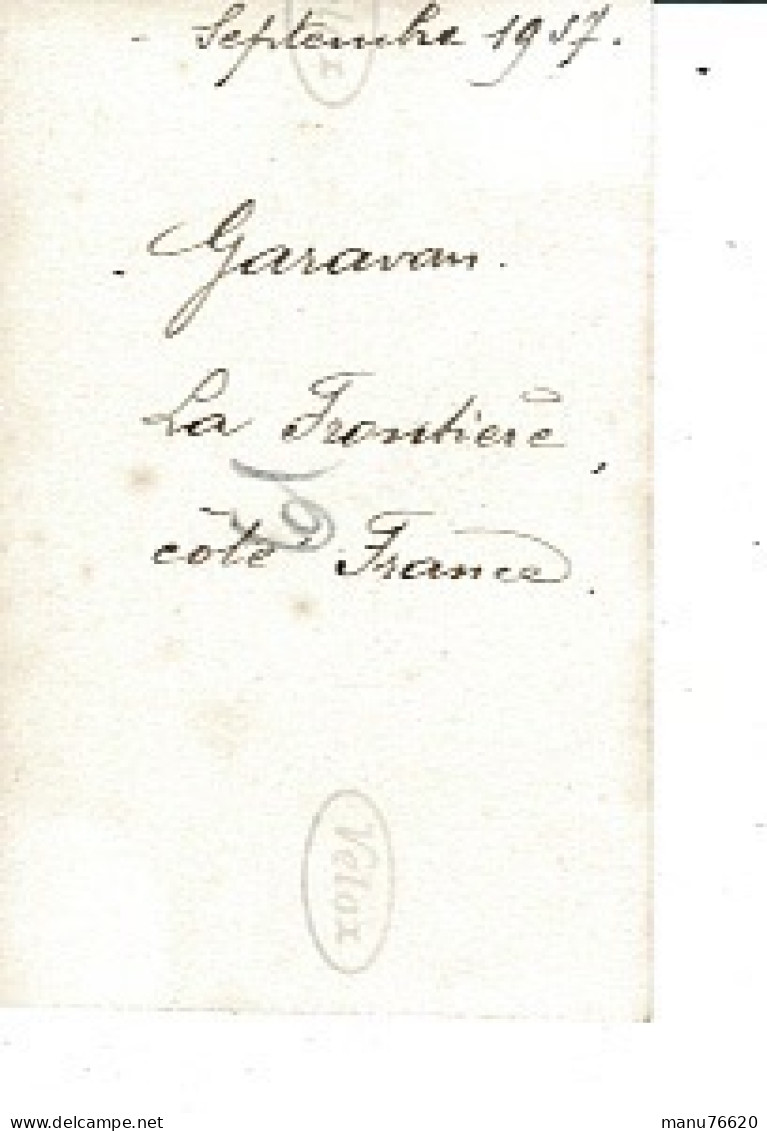 - Septembre 1937.
. Garavan.
La Frontière,
côté France.
Velox
delcampe.net
manu76620